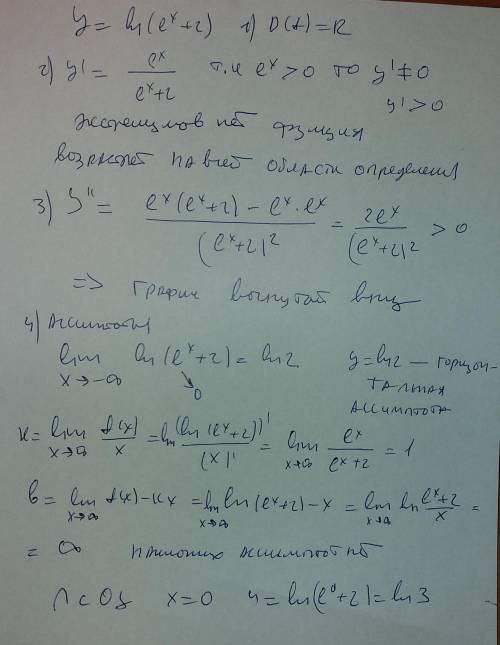 y = ln(eˣ+2) 1) D(f)=R
2) y' = eˣ/(eˣ+2) т.к eˣ>0 то y'≠0
y'>0
Экстремумов нет функция
возрастает на всей области определения
3) y'' = (eˣ(eˣ+2) - eˣ·eˣ)/(eˣ+2)² = 2eˣ/(eˣ+2)² > 0
=> График вогнутый вниз
4) Ассимптоты
lim x→-∞ ln(eˣ+2) = ln2 y=ln2 — горизон-
0 тальная
ассимптота
k = lim x→∞ f(x)/x = lim (ln(eˣ+2))'/(x)' = lim x→∞ eˣ/(eˣ+2) = 1
b = lim x→∞ f(x)-kx = lim x→∞ ln(eˣ+2)-x = lim x→∞ ln (eˣ+2)/x =
= ∞ наклонных ассимптот нет
∩ с Oy x=0 y = ln(e⁰+2) = ln3